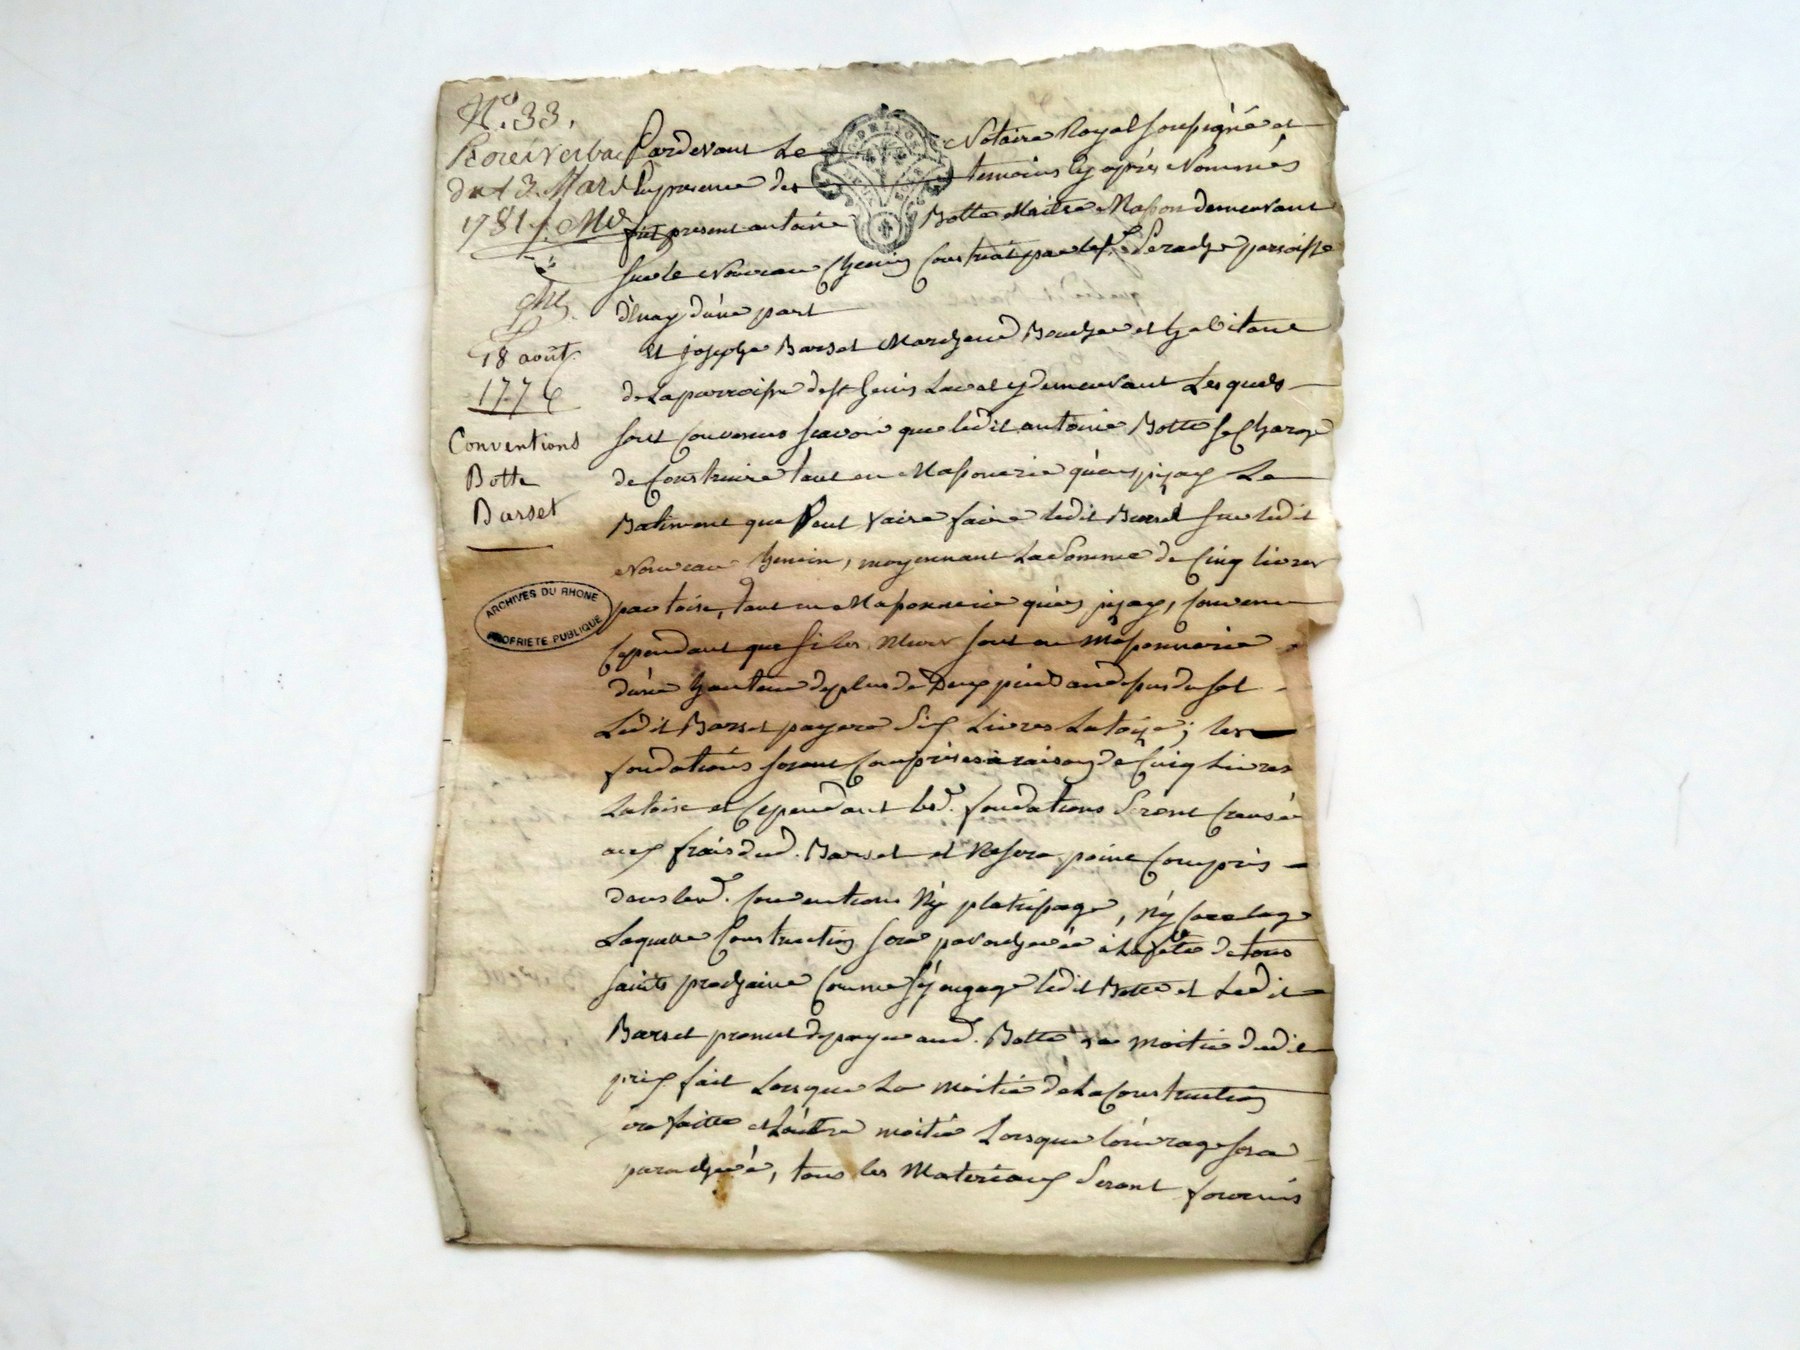 N°. 33.
du 13. Mars
1781
18 août
1776
Conventions
Botte
Barset
ARCHIVES DU RHONE
PROPRIETE PUBLIQUE
Pardevant Le Notaire Royal soussigné et
En presence des temoins cy après Nommés
fut present antoine Botte Maitre Masson demeurant
sur le Nouveau chemin construit par le sr. Perache parroisse
d'Enay d'une part
Et josephe Barset Marchand Boucher et habitant
de La parroisse de st genis Laval y demeurant Lesquels
sont Convenus scavoir que ledit antoine Botte se Charge
de Construire tant en Massonerie qu'en pizay Le
Batiment que Veut faire ledit Barset sur ledit
Nouveau chemin, moyennant La somme de Cinq livres
par toise, tant en Massonnerie qu'en pizay, convenu
Cependant que si les Murs sont en massonnerie
d'une hauteur de plus de Deux pieds au dessus du sol
Ledit Barset payera Six Livres La toize; les
fondations seront Comprises à raison de Cinq Livres
La toise et Cependant lesd. fondations Seront Creusé
aux frais dud. Barset et Ne sera point Compris
dans lesd. conventions Ny platrissage, Ny carrelage
Laquelle Construction sera parachevée à La fête de tous
saints prochaine comme s'y engage ledit Botte et Ledit
Barset promet de payer aud. Botte La moitié dudit
prix fait Lorsque La moitié de La Construction
sera faitte et L'autre moitié Lorsque l'ouvrage sera
parachevée, tous les Materiaux Seront fournis